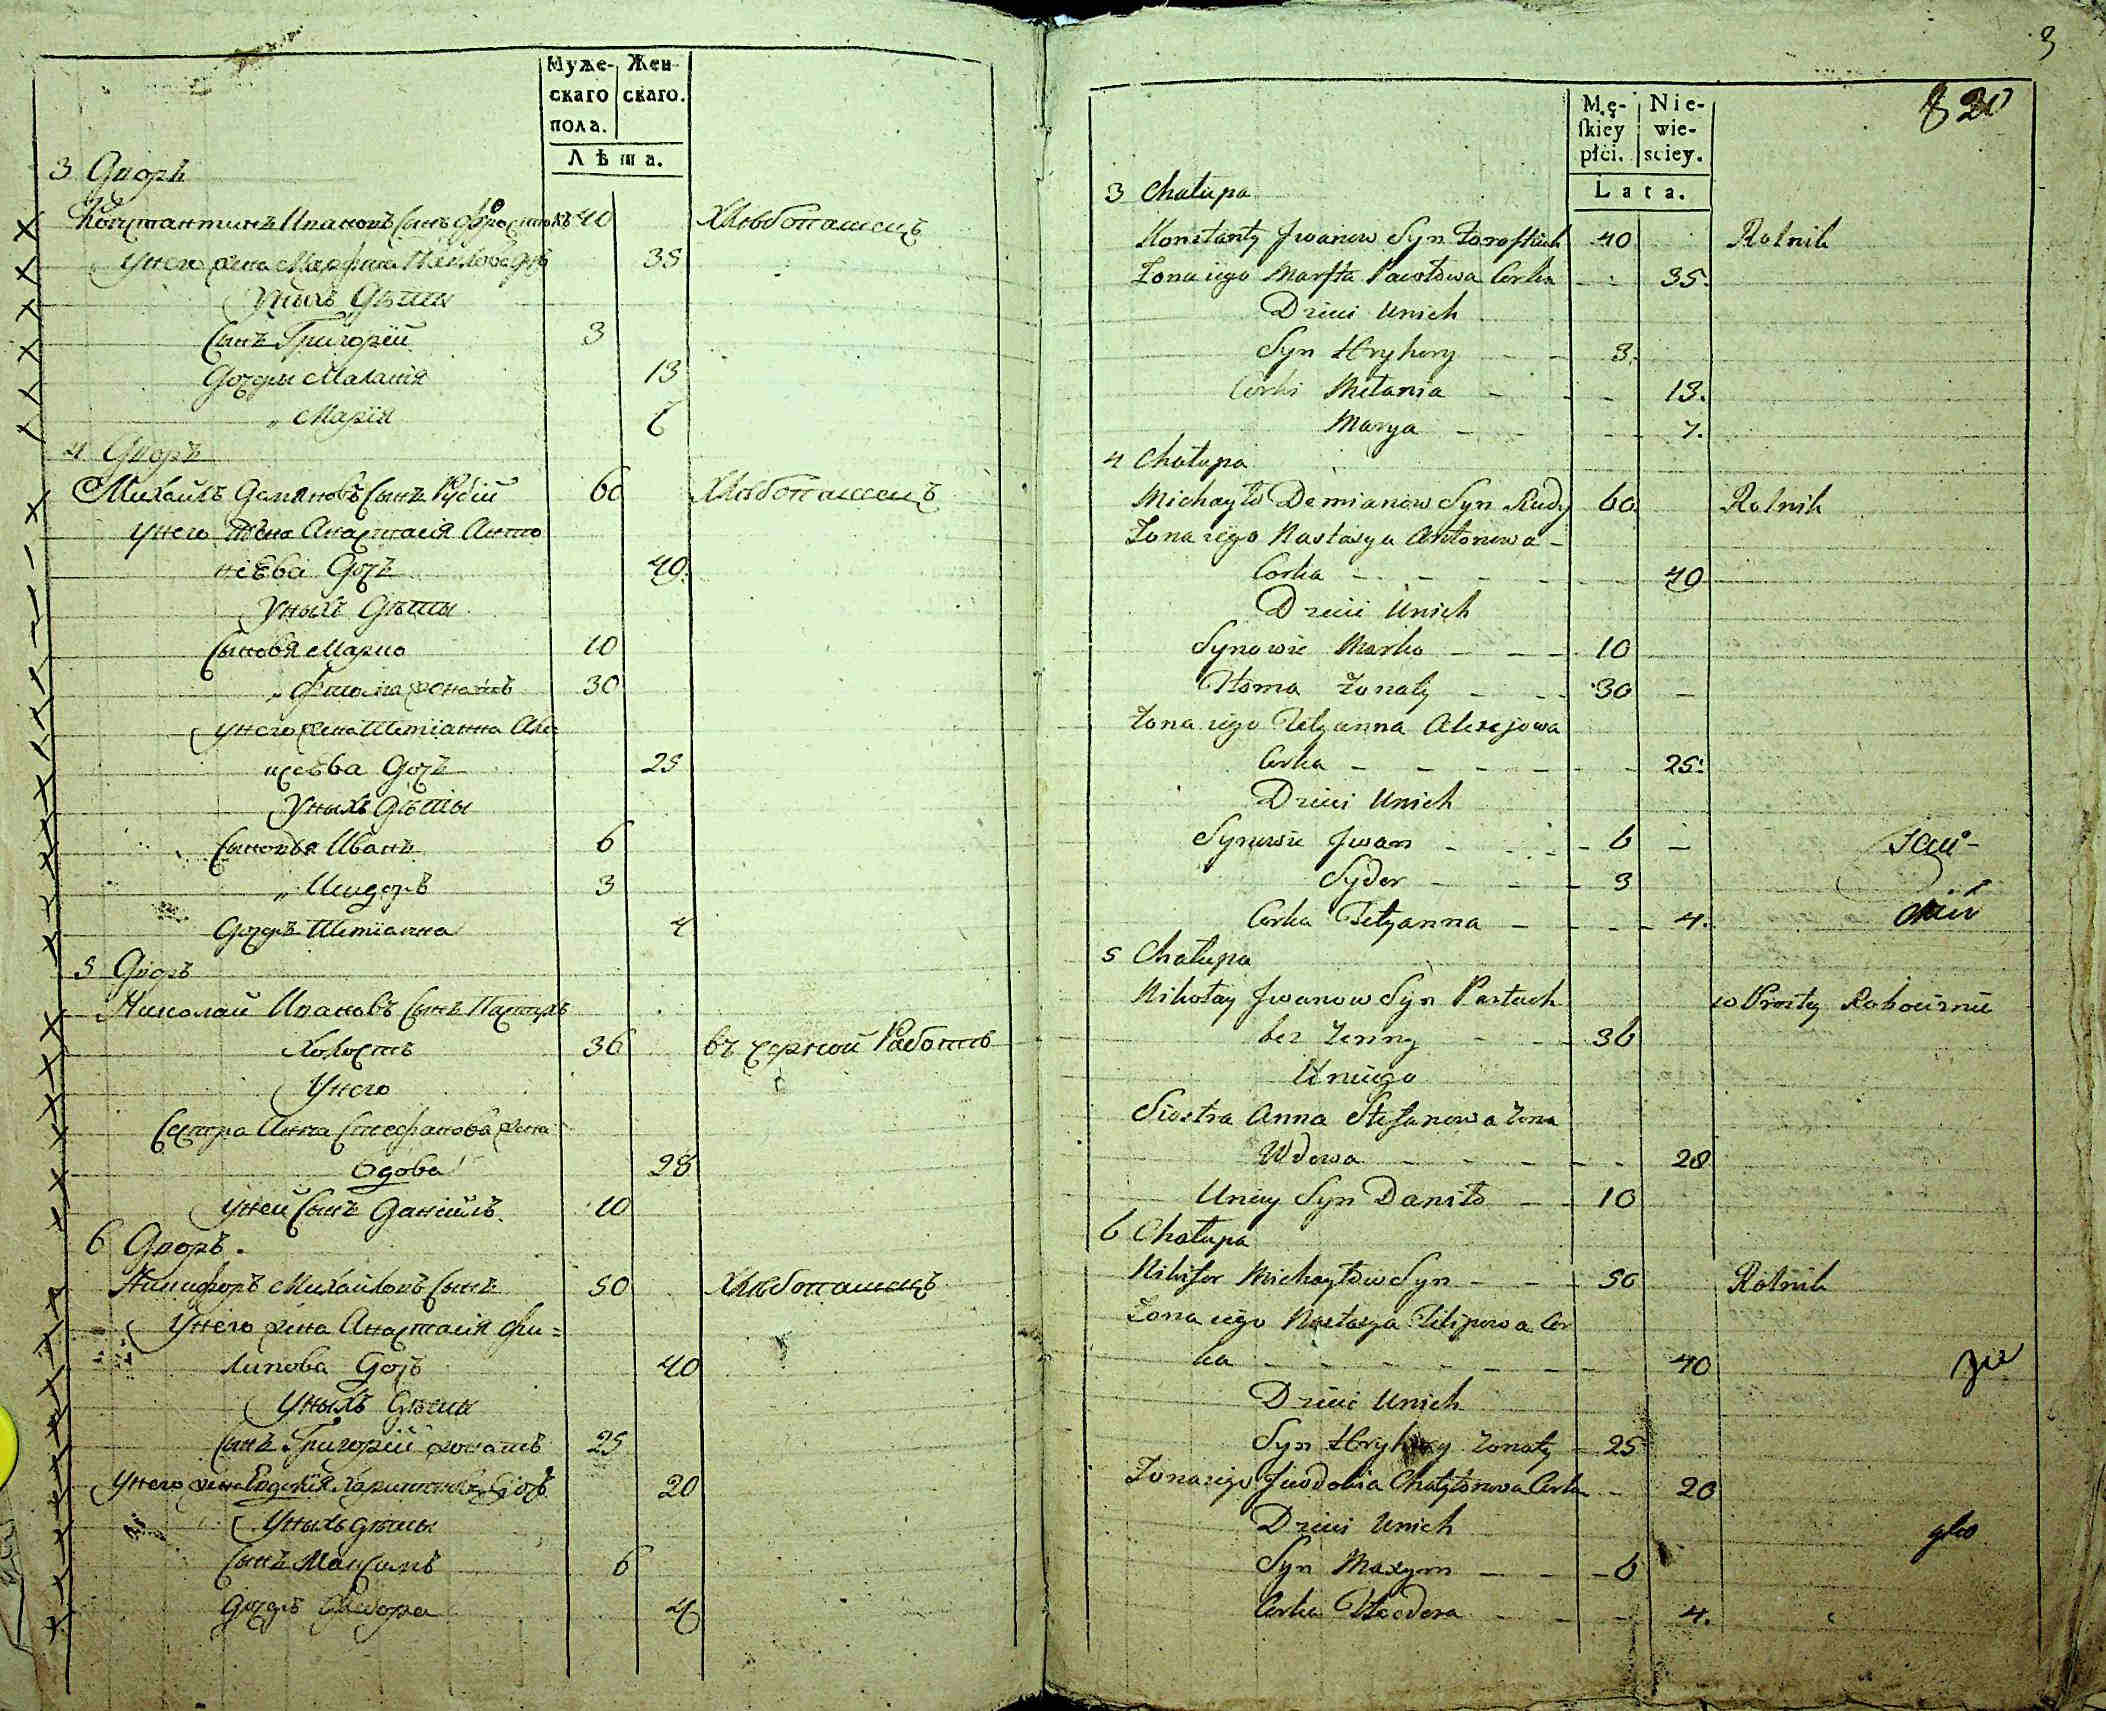 Муже- Жен-
скаго скаго.
пола.
Лѣта.
3 Дворъ
Константинъ Ивановъ Сынъ 40 Хлѣбопашецъ
Унего жена Марфа Павлова Доч 35
Уних Дѣти
Сынъ Григорій 3
Дочери Маланія 13
„ Марія 7
4 Дворъ
Михайлъ Деміановъ Сынъ Рудій 60 Хлѣбопашецъ
Унего жена Анастасія Анто
ніева Дочъ 40
Уныхъ Дѣти
Сыновя Марко 10
„ Фома женатъ 30
Унего жена Тетіанна Але
ксѣева Дочъ 25
Уныхъ Дѣти
Сыновья Иванъ 6
„ Исидоръ 3
Дочеръ Тетіанна 4
5 Дворъ
Николай Ивановъ Сынъ Пастухъ
Холостъ 36 въ черной Работѣ
Унего
Сестра Анна Стефанова жена
вдова 28
Уней Сынъ Даніилъ 10
6 Дворъ.
Никифоръ Михайловъ Сынъ 50 Хлѣбопашецъ
Унего жена Анастасія Фи=
липова Дочъ 40
Уныхъ Дѣти
Сынъ Григорій женатъ 25
Унего жена Евдокія Харитонова Дочъ 20
Уныхъ дѣти
Сынъ Максимъ 6
Дочеръ Феодора 4
3
820
Mę- Nie-
skiey wie-
płci. sciey.
Lata.
3 Chałupa
Konstanty Jwanow Syn 40 Rolnik
Żona iego Marfta Pawłowa Corka 35.
Dzieci Unich
Syn Hryhory 3.
Corki Mełania 13.
Marya 7.
4 Chałupa
Michayło Demianow Syn Rudy 60 Rolnik
Żona iego Nastasya Antonowa
Corka 40
Dzieci Unich
Synowie Marko 10
Thoma Żonaty 30
Żona iego Tetyanna Alexejowa
Corka 25.
Dzieci Unich
Synowie Jwan 6
Sydor 3
Corka Tetyanna 4.
5 Chałupa
Nikołay Jwanow Syn Pastuch w Prosty Robociznie
bez Żenny 36
Uniego
Siostra Anna Stefanowa Żona
Wdowa 28
Uniey Syn Daniło 10
6 Chałupa
Nikifor Michayłow Syn 50 Rolnik
Żona iego Nastasya Filipowa Cor
ka 40
Dzieci Unich
Syn Hryhory Żonaty 25
Żona iego Jewdokia Charytonowa Corka 20
Dzieci Unich
Syn Maxym 6
Corka Theodora 4.